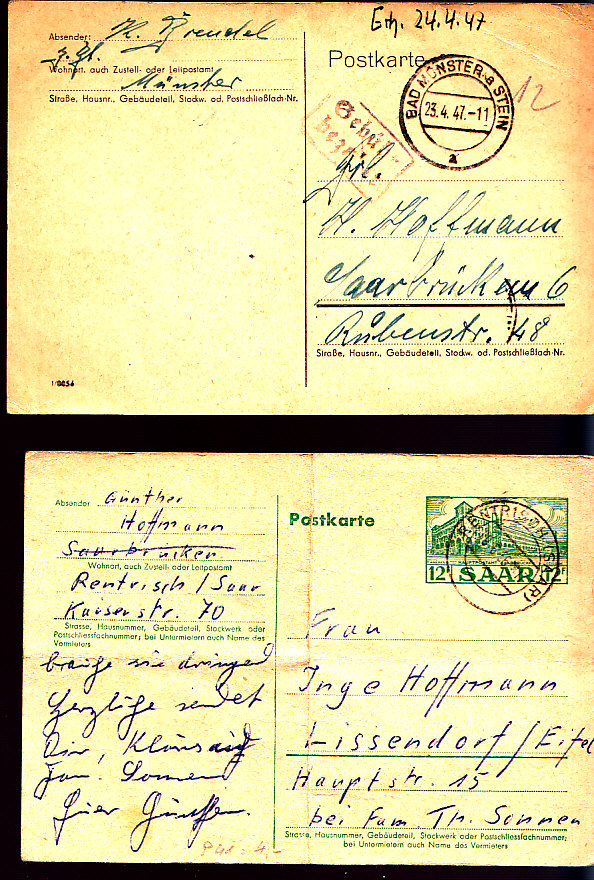 Erh. 24.4.47
Absender: K. Brendel
z. Zt.
Wohnort, auch Zustell- oder Leitpostamt
Münster
Straße, Hausnr., Gebäudeteil, Stockw. od. Postschließfach-Nr.
Postkarte
BAD MÜNSTER a STEIN
23.4.47.-11
a
12
Gebühr
bezahlt
Frl.
H. Hoffmann
Saarbrücken 6
Rubenstr. 48
Straße, Hausnr., Gebäudeteil, Stockw. od. Postschließfach-Nr.
Absender Günther
Hoffmann
Saarbrücken
Wohnort, auch Zustell- oder Leitpostamt
Rentrisch/Saar
Kaiserstr. 70
Strasse, Hausnummer, Gebäudeteil, Stockwerk oder
Postschliessfachnummer; bei Untermietern auch Name des
Vermieters
Herzliche
Dir, Klaus
Fam.
Günther.
Postkarte
RENTRISCH (SAAR)
12 SAAR 12
Frau
Inge Hoffmann
Lissendorf/Eifel
Hauptstr. 15
bei Fam. Th. Sonnen
Strasse, Hausnummer, Gebäudeteil, Stockwerk oder Postschliessfachnummer;
bei Untermietern auch Name des Vermieters